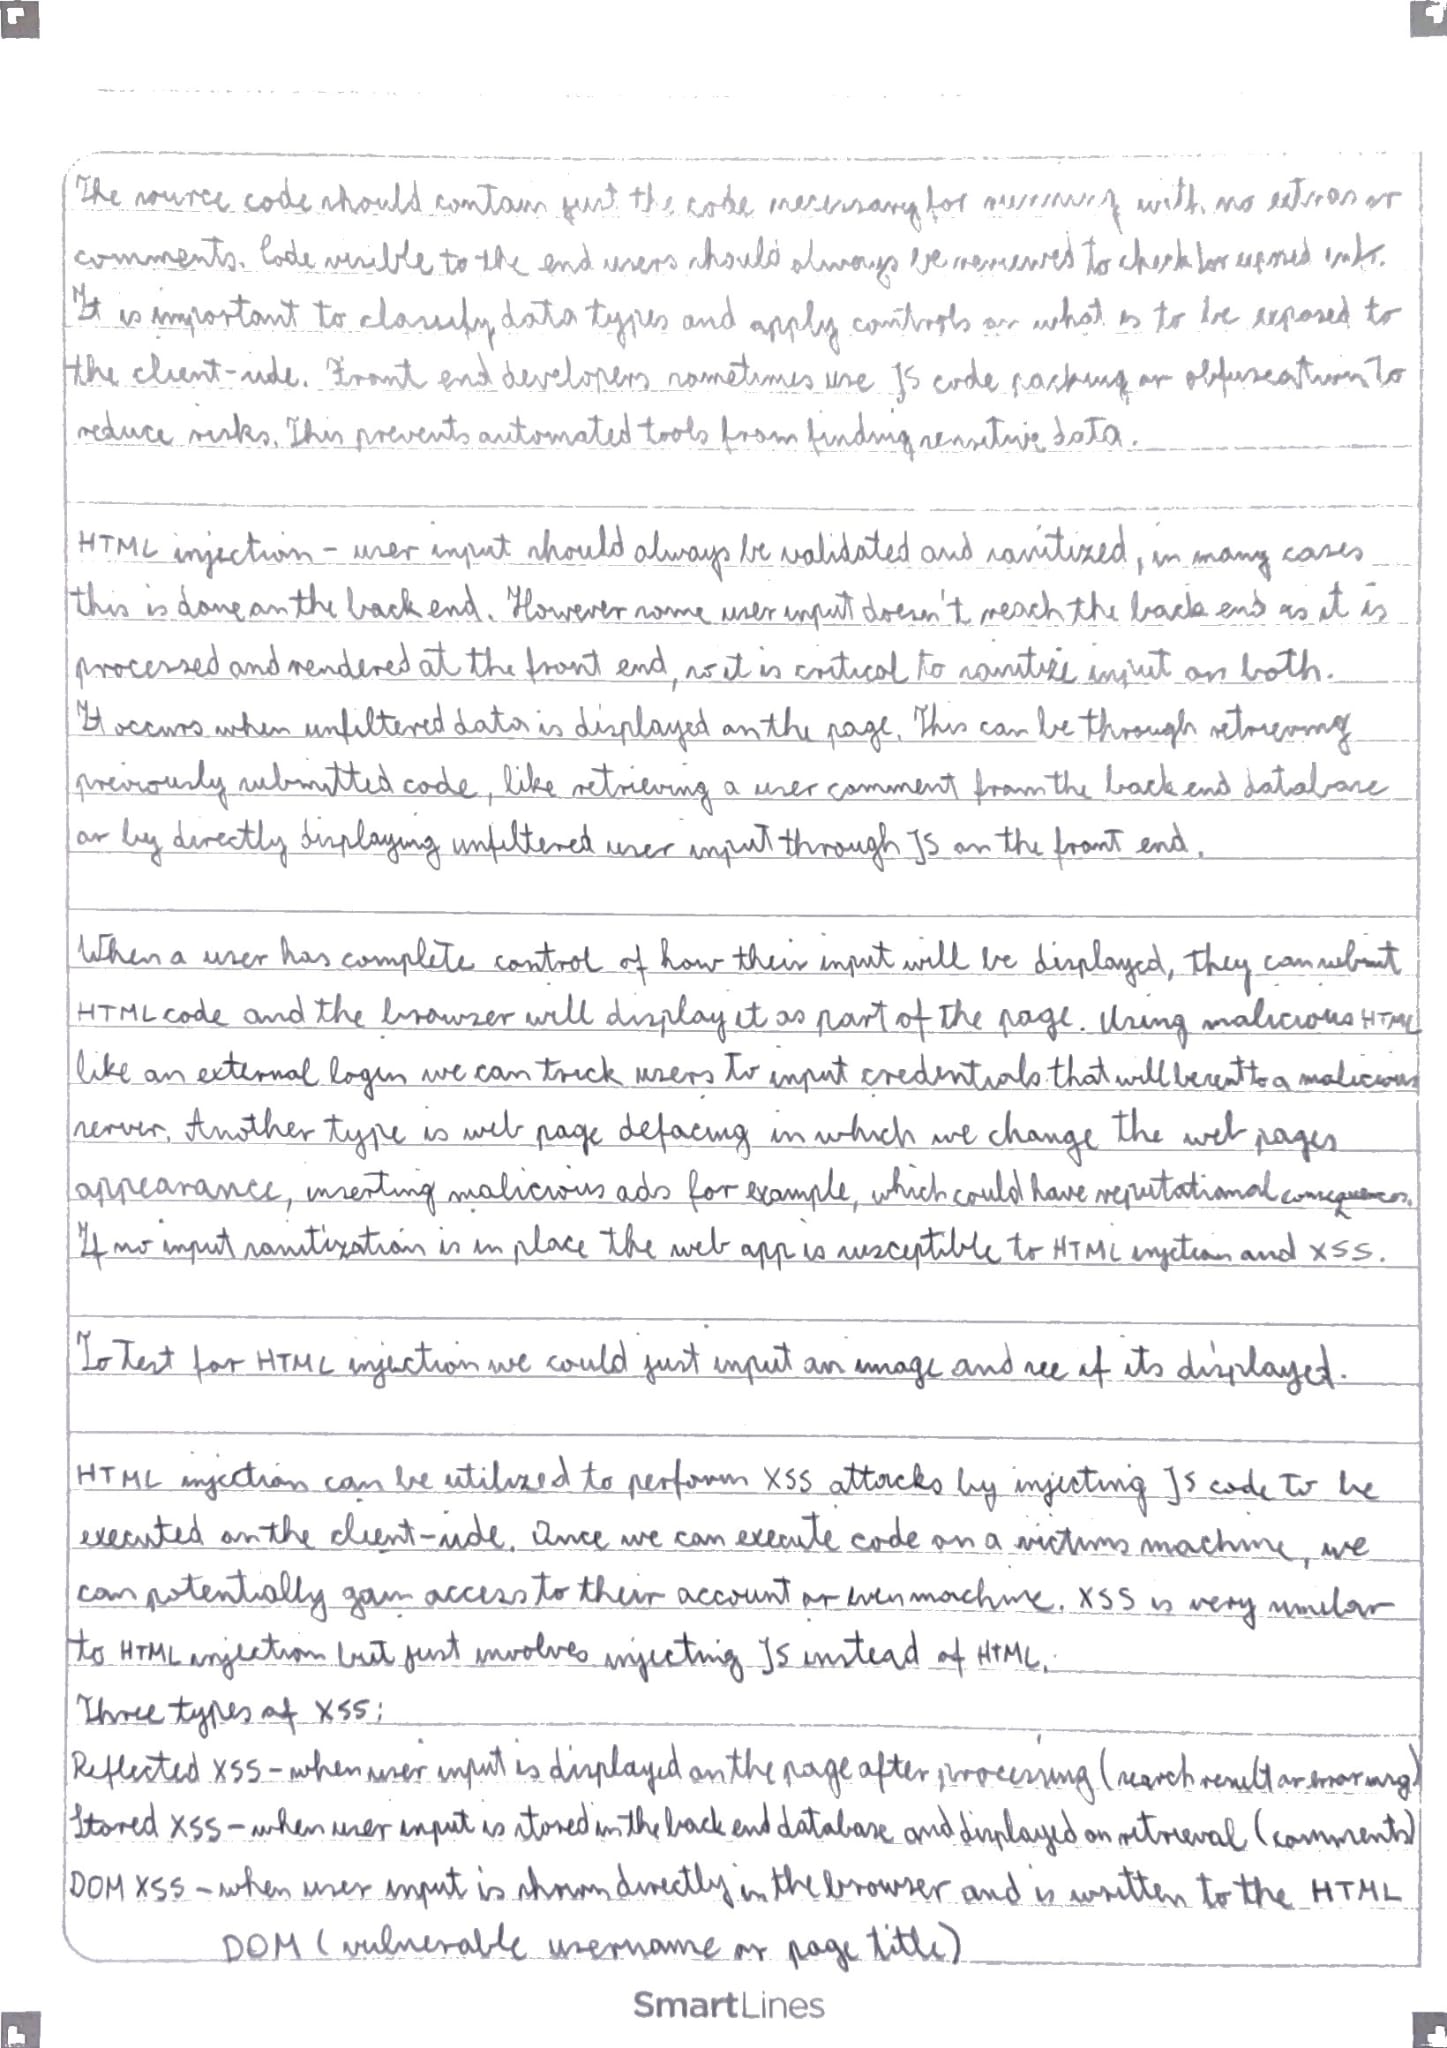 The source code should contain just the code necessary for running with no extras or
comments. Code visible to the end users should always be reviewed to check for exposed info.
It is important to classify data types and apply controls on what is to be exposed to
the client-side. Front end developers sometimes use JS code packing or obfuscation to
reduce risks. This prevents automated tools from finding sensitive data.
HTML injection - user input should always be validated and sanitized, in many cases
this is done on the back end. However some user input doesn't reach the back end as it is
processed and rendered at the front end, so it is critical to sanitize input on both.
It occurs when unfiltered data is displayed on the page. This can be through retrieving
previously submitted code, like retrieving a user comment from the back end database
or by directly displaying unfiltered user input through JS on the front end.
When a user has complete control of how their input will be displayed, they can submit
HTML code and the browser will display it as part of the page. Using malicious HTML
like an external login we can trick users to input credentials that will be sent to a malicious
server. Another type is web page defacing in which we change the web pages
appearance, inserting malicious ads for example, which could have reputational consequences.
If no input sanitization is in place the web app is susceptible to HTML injection and XSS.
To test for HTML injection we could just input an image and see if its displayed.
HTML injection can be utilized to perform XSS attacks by injecting JS code to be
executed on the client-side. Once we can execute code on a victims machine, we
can potentially gain access to their account or even machine. XSS is very similar
to HTML injection but just involves injecting JS instead of HTML.
Three types of XSS:
Reflected XSS - when user input is displayed on the page after processing (search result or error msg)
Stored XSS - when user input is stored in the back end database and displayed on retrieval (comments)
DOM XSS - when user input is shown directly in the browser and is written to the HTML
DOM (vulnerable username or page title)
SmartLines